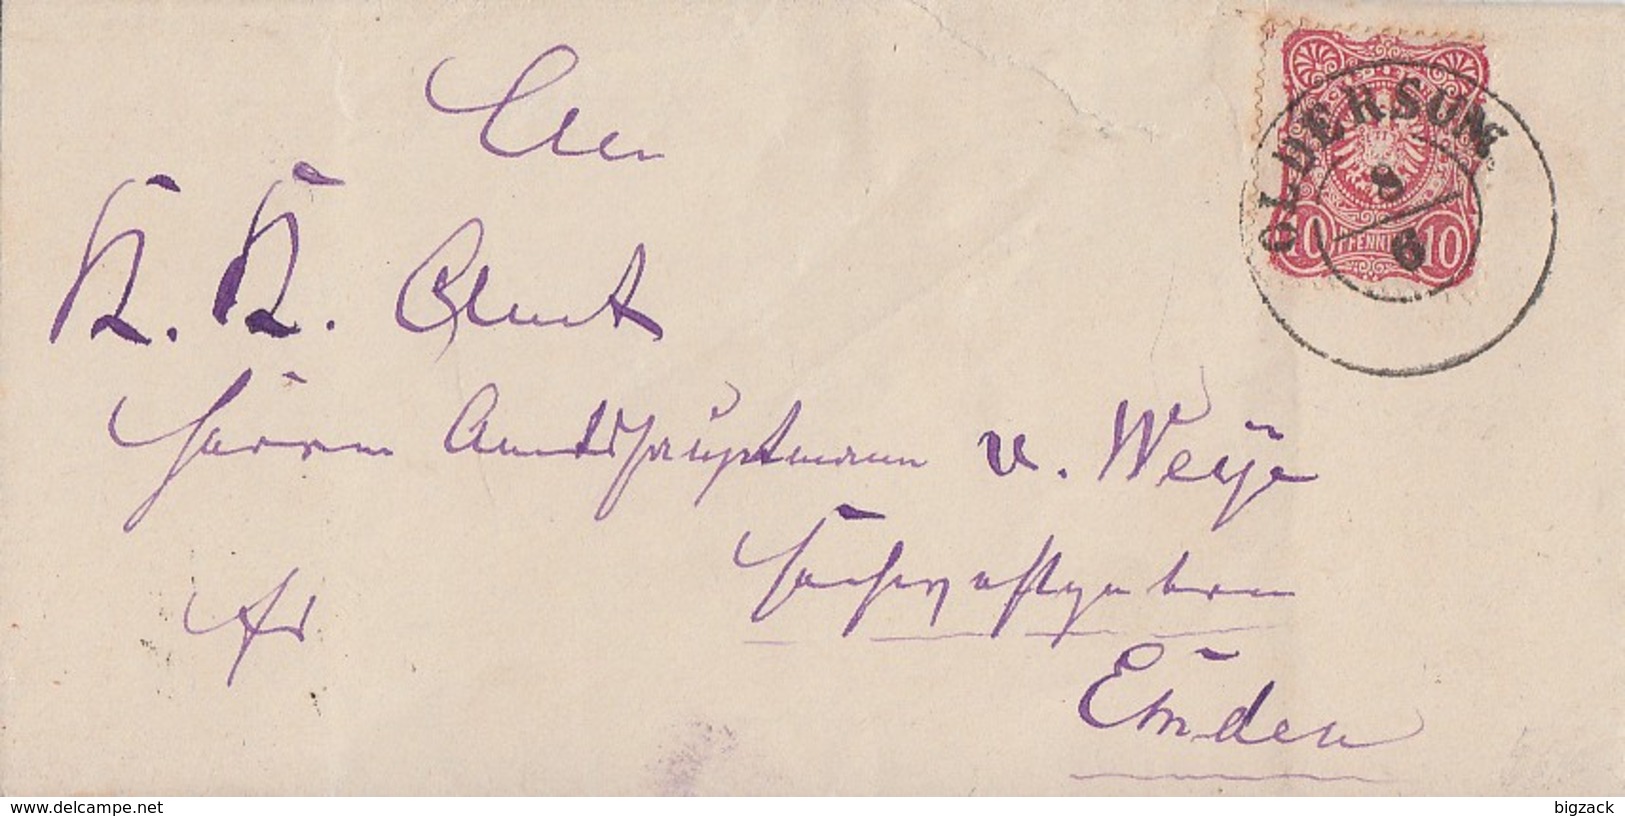 OLDERSUM
8
6
10 PFENNIG 10
An
K. K. Amt
Herrn Amtshauptmann v. Weyhe
Hochwohlgeboren
fr
Emden
www.delcampe.net
bigzack